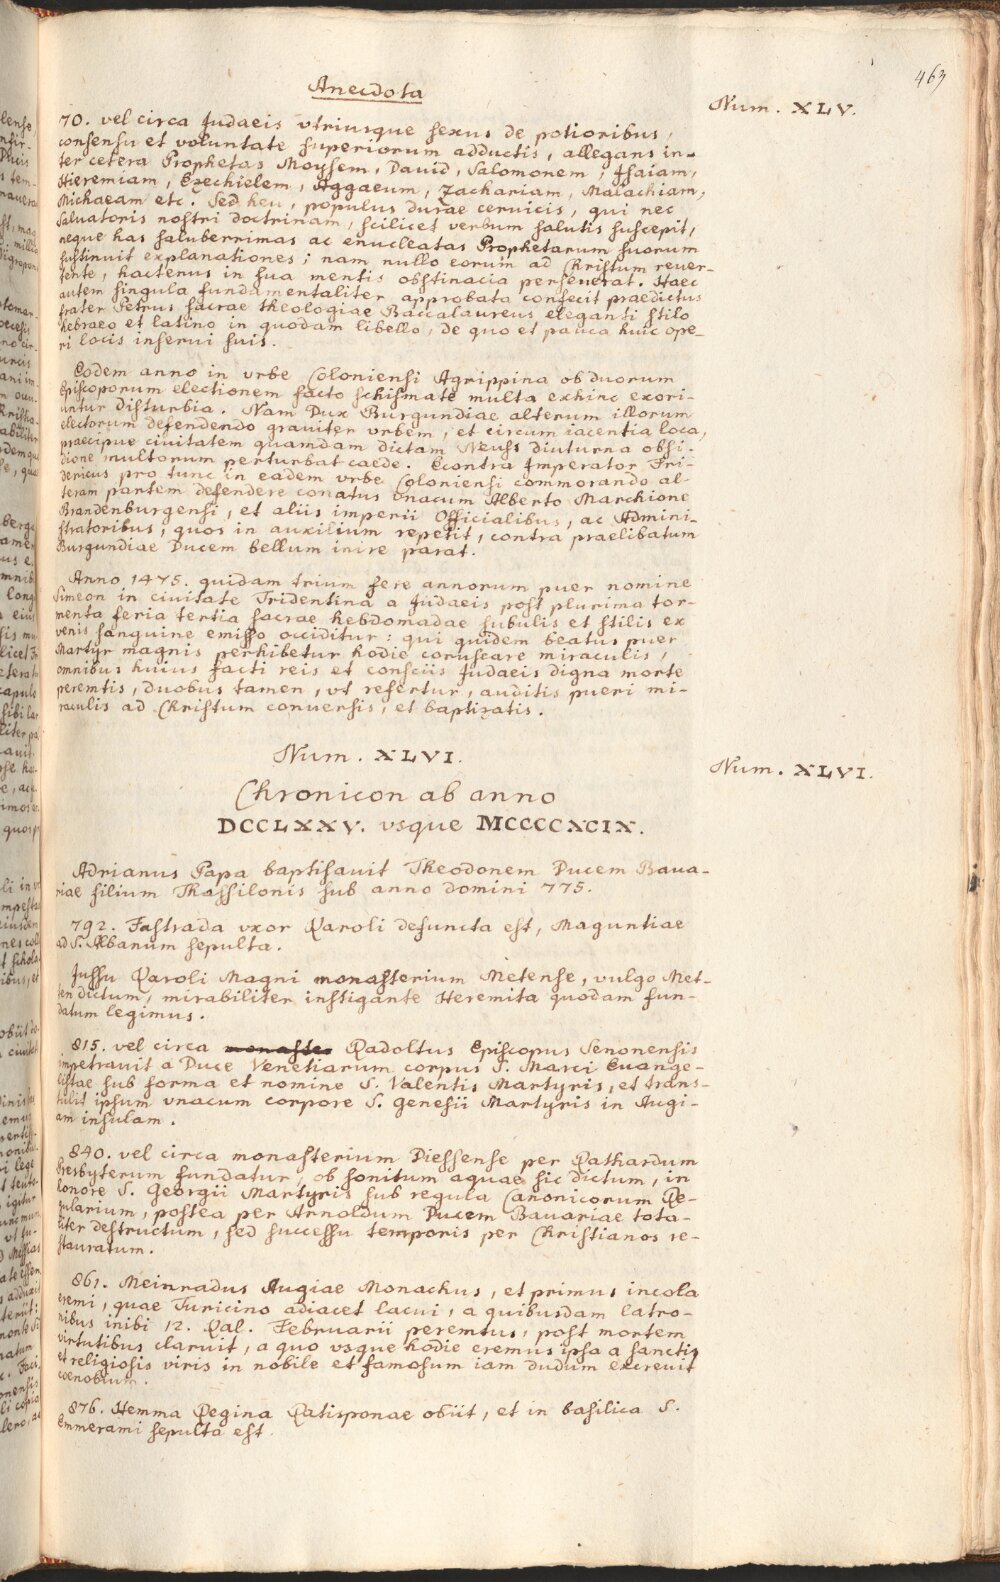 463
Anecdota
Num. XLV.
70. vel circa Judaeis vtriusque sexus de potioribus,
consensu et voluntate superiorum adductis, allegans in-
ter cetera Prophetas Moysem, David, Salomonem, Isaiam,
Hieremiam, Ezechielem, Aggaeum, Zachariam, Malachiam,
Michaeam etc. Sed heu, populus durae cervicis, qui nec
Salvatoris nostri doctrinam, scilicet verbum salutis suscepit,
neque has saluberrimas ac enucleatas Prophetarum suorum
sustinuit explanationes; nam nullo eorum ad Christum rever-
tente, hactenus in sua mentis obstinacia perseuerat. Haec
autem singula fundamentaliter approbata confecit praedictus
frater Petrus sacrae theologiae Baccalaureus eleganti stilo
hebraeo et latino in quodam libello, de quo et pauca huic ope-
ri locis inserui suis.
Eodem anno in vrbe Coloniensi Agrippina ob duorum
Episcoporum electionem facto schismate multa exhinc exori-
untur disturbia. Nam Dux Burgundiae alterum illorum
electorum defendendo grauiter vrbem, et circum iacentia loca,
praecipue ciuitatem quamdam dictam Neuss diuturna obsi-
dione multorum perturbat caede. Econtra Imperator Fri-
dericus pro tunc in eadem vrbe Coloniensi commorando al-
teram partem defendere conatus vnacum Alberto Marchione
Brandenburgensi, et aliis imperii Officialibus, ac Admini-
stratoribus, quos in auxilium repetit, contra praelibatum
Burgundiae Ducem bellum inire parat.
Anno 1475. quidam trium fere annorum puer nomine
Simeon in ciuitate Tridentina a Judaeis post plurima tor-
menta feria tertia sacrae hebdomadae subulis et stilis ex
venis sanguine emisso occiditur: qui quidem beatus puer
Martyr magnis perhibetur hodie coruscare miraculis,
omnibus huius facti reis et consciis Judaeis digna morte
peremtis, duobus tamen, vt refertur, auditis pueri mi-
raculis ad Christum conuersis, et baptizatis.
Num. XLVI.
Num. XLVI.
Chronicon ab anno
DCCLXXV. vsque MCCCCXCIX.
Adrianus Papa baptisauit Theodonem Ducem Baua-
riae filium Thassilonis sub anno domini 775.
792. Fastrada vxor Karoli defuncta est, Maguntiae
ad S. Albanum sepulta.
Jussu Karoli Magni monasterium Metense, vulgo Met-
ten dictum, mirabiliter instigante Heremita quodam fun-
datum legimus.
815. vel circa monaster Radoltus Episcopus Senonensis
impetrauit a Duce Venetiarum corpus S. Marci Euange-
listae sub forma et nomine S. Valentis Martyris, et trans-
tulit ipsum vnacum corpore S. Genesii Martyris in Augi-
am insulam.
840. vel circa monasterium Diessense per Rathardum
Presbyterum fundatur, ob sonitum aquae sic dictum, in
honore S. Georgii Martyris sub regula Canonicorum Re-
gularium, postea per Arnoldum Ducem Bauariae tota-
liter destructum, sed successu temporis per Christianos re-
stauratum.
861. Meinradus Augiae Monachus, et primus incola
eremi, quae Turicino adiacet lacui, a quibusdam latro-
nibus inibi 12. Kal. Februarii peremtus, post mortem
virtutibus claruit, a quo vsque hodie eremus ipsa a sanctis
et religiosis viris in nobile et famosum iam dudum excreuit
coenobium.
876. Hemma Regina Ratisponae obiit, et in basilica S.
Emmerami sepulta est.